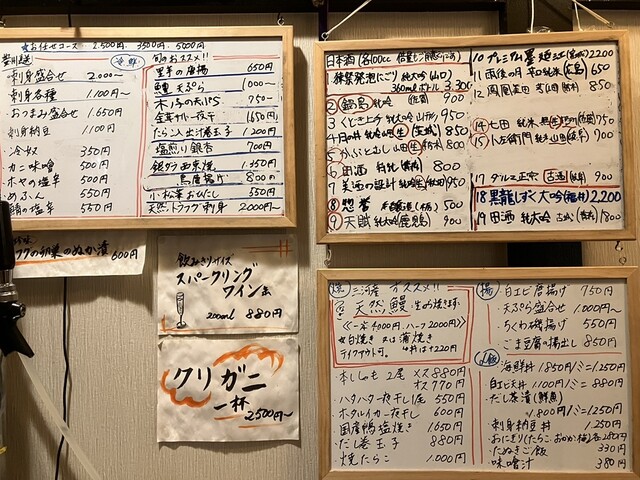 ★お任せコース 2,500円、3500円、5000円
冷鮮
刺身盛合せ 2,000〜
刺身各種 1,100円〜
おつまみ盛合せ 1,650円
刺身納豆 1,100円
冷奴 350円
カニ味噌 500円
ホヤの塩辛 500円
めふん 550円
鯖の塩辛 550円
旬のオススメ!!
里芋の唐揚 650円
天ぷら 1,000〜
木ノ子の天ぷら 750〜
1,650円
たらこ入出汁巻玉子 1,200円
塩煎り銀杏 700円
銀ダラ西京焼 1,350円
唐揚げ 800円
小松菜おひたし 550円
天然トラフグ刺身 2,000円〜
フグの卵巣のぬか漬 600円
飲みきりサイズ
スパークリング
ワイン缶
200ml 880円
クリガニ
一杯
2,500円〜
日本酒
純大吟
360mlボトル 3,300
② 鍋島 純吟 佐賀 900
③ 850
④ 950
⑤ かぶとむし 純吟 生 栃木 800
⑥ 田酒 特純 800
⑦ 美酒の設計 純吟 950
⑧ 惣誉 500
⑨ 天賦 純吟 鹿児島 900
10 プレミアム 2200
11 雨後の月 純米 広島 650
12 鳳凰美田 850
14 七田 純米 700
15 小左衛門 純米 700
17 ダルマ正宗 古酒 岐阜 900
18 黒龍しずく 大吟 福井 2,200
19 田酒 純大吟 古城 1,800
焼
三河産 オススメ!!
天然鰻 生から焼きます
<一本 4000円、ハーフ 2000円>
★白焼き 又は 蒲焼き
テイクアウト可。 +220円
本ししゃも 2尾 メス 880円
オス 770円
・ハタハタ一夜干し1尾 550円
・ホタルイカ一夜干し 600円
・国産鴨塩焼き 1,650円
・だし巻玉子 880円
・焼たらこ 1,000円
揚
白エビ唐揚げ 750円
天ぷら盛合せ 1,000円〜
ちくわ磯揚げ 550円
ごま豆腐の揚出し 850円
飯
海鮮丼 1,850円/ミニ 1,250円
白エビ天丼 1,100円/ミニ 880円
・だし茶漬(鮮魚)
1,800円/ミニ1,250円
・刺身納豆丼 1,250円
・おにぎり(たらこ、おかか、梅)各280円
・たぬきご飯 330円
・味噌汁 380円